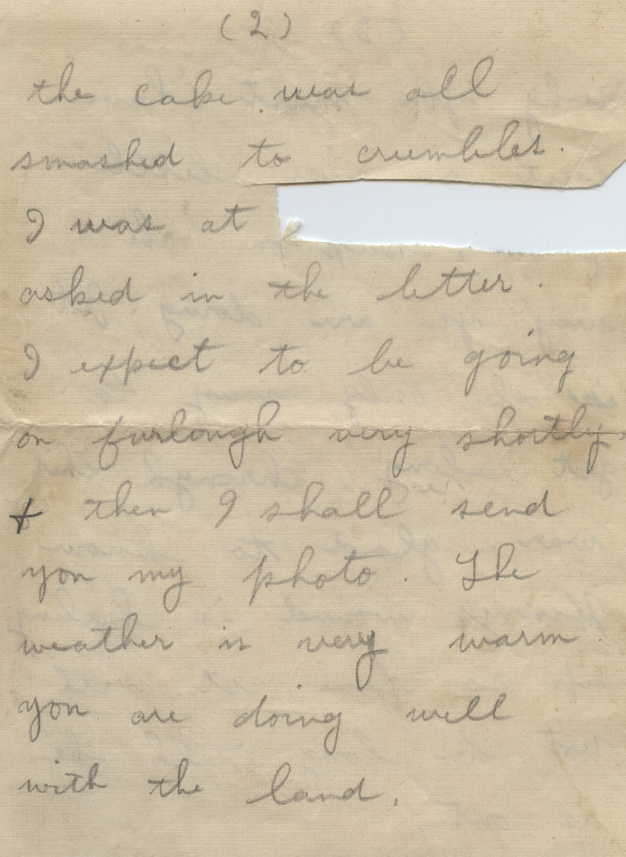 (2)
the cake was all
smashed to crumbles.
I was at
asked in the letter.
I expect to be going
on furlough very shortly.
+ then I shall send
you my photo. The
weather is very warm.
you are doing well
with the land.